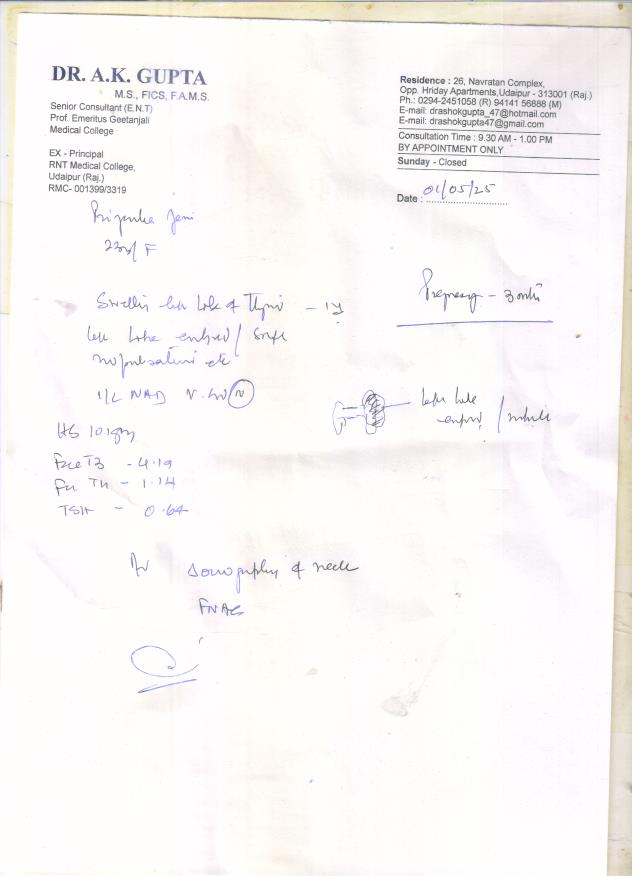 DR. A.K. GUPTA
M.S., FICS, F.A.M.S.
Senior Consultant (E.N.T)
Prof. Emeritus Geetanjali
Medical College
EX - Principal
RNT Medical College,
Udaipur (Raj.)
RMC- 001399/3319
Residence : 26, Navratan Complex,
Opp. Hriday Apartments,Udaipur - 313001 (Raj.)
Ph.: 0294-2451058 (R) 94141 56888 (M)
E-mail: drashokgupta_47@hotmail.com
E-mail: drashokgupta47@gmail.com
Consultation Time : 9.30 AM - 1.00 PM
BY APPOINTMENT ONLY
Sunday - Closed
Date : 01/05/25
/ F
Swelling left lobe of - 1y
left lobe /
no pulsations etc
I/L NAD N
Pregnancy -
left lobe
/ nodule
Hb 10.1gm
Free T3 - 4.19
T4 - 1.14
TSH - 0.64
Sonography of neck
FNAC